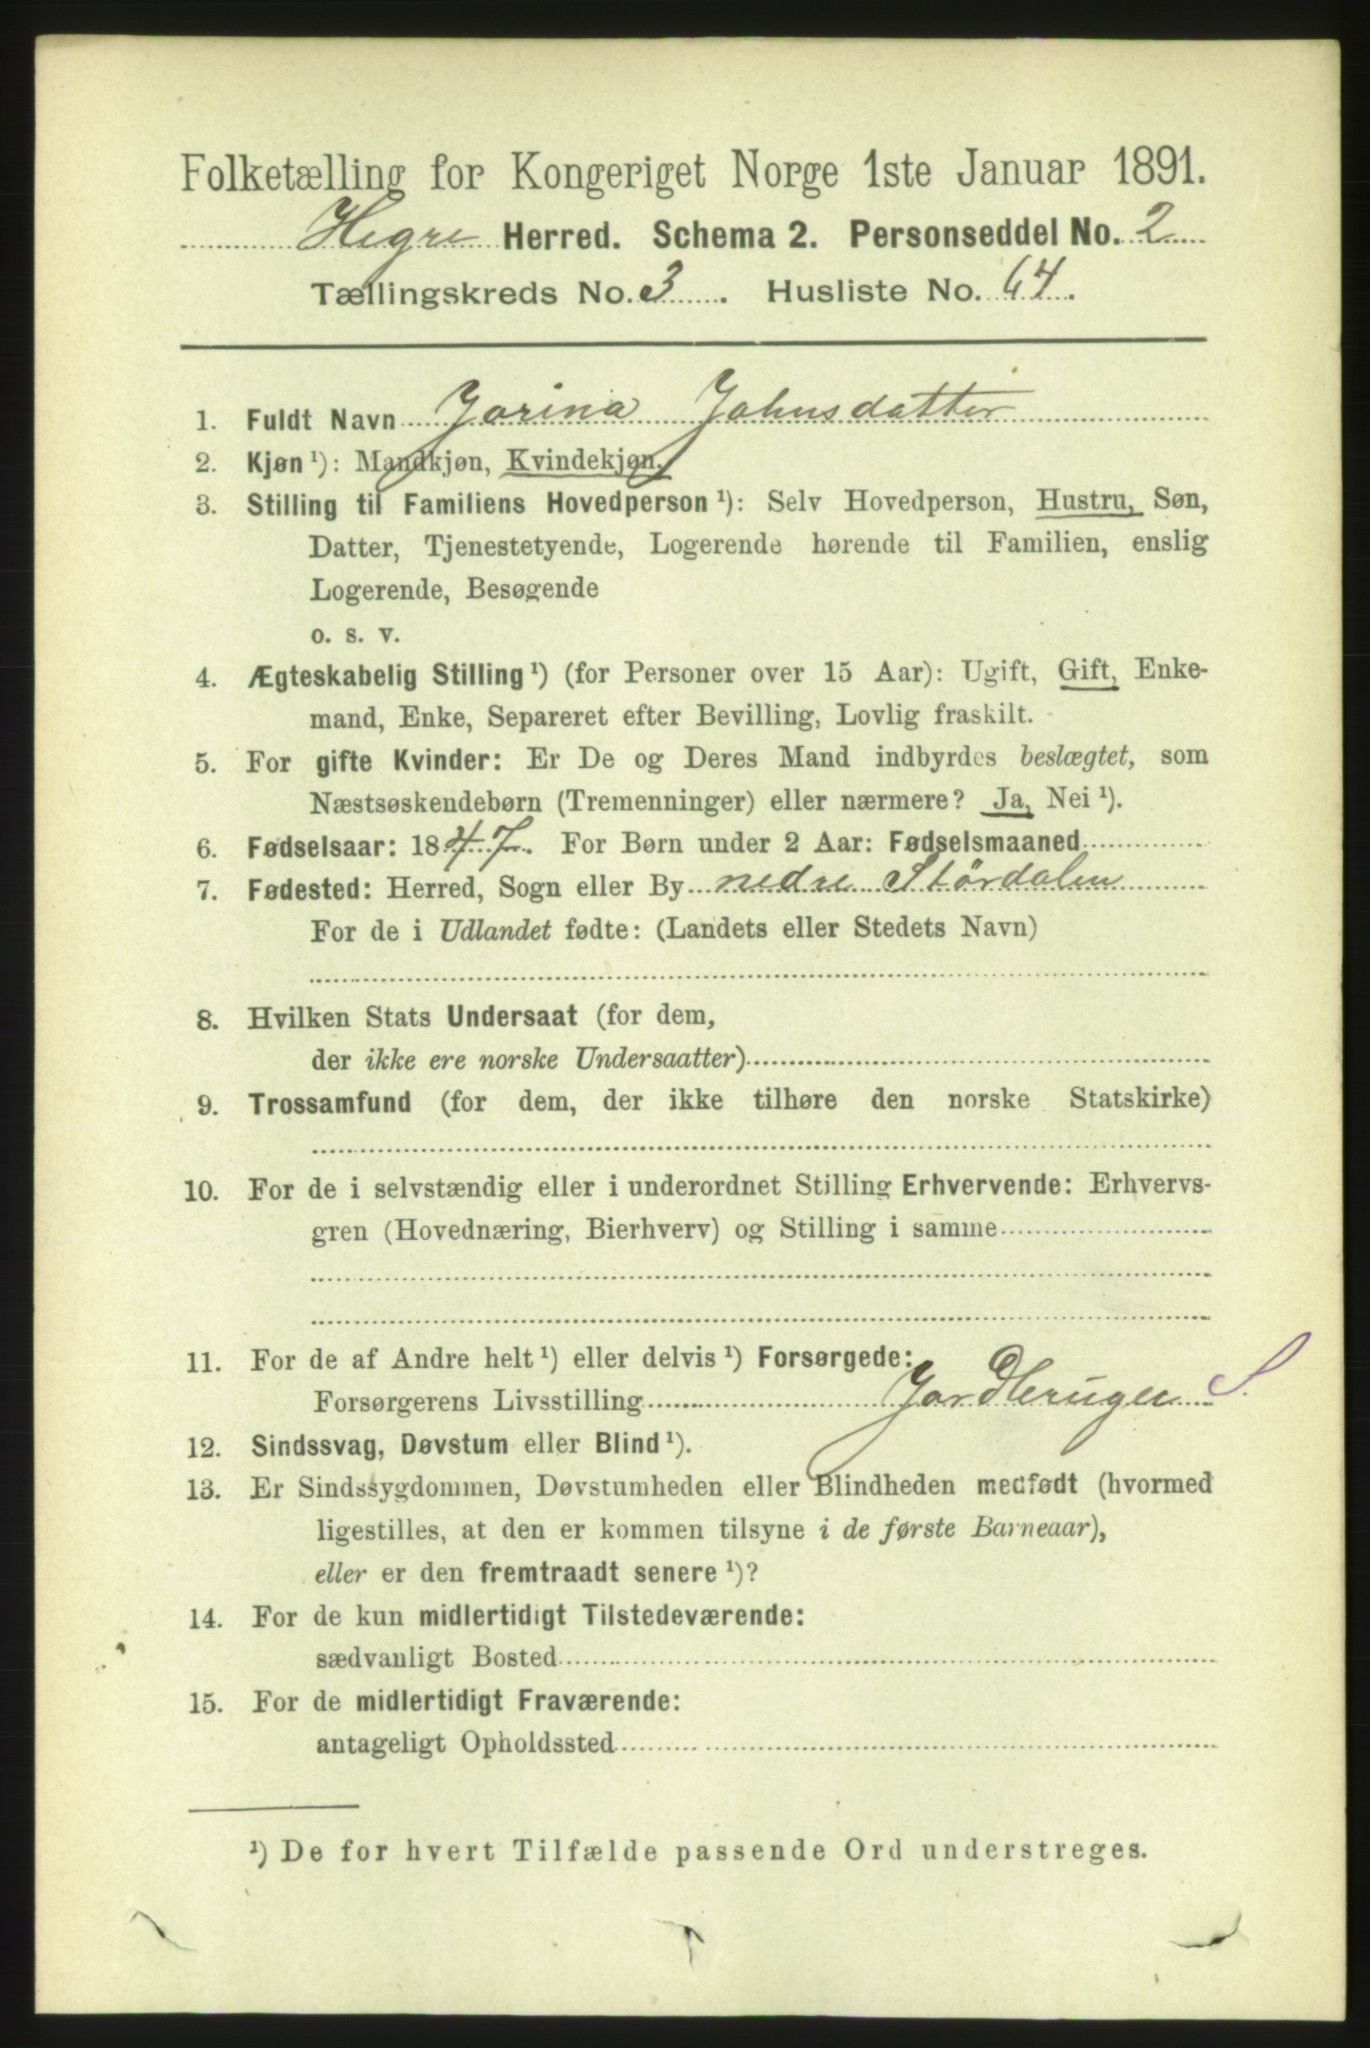 Folketælling for Kongeriget Norge 1ste Januar 1891.
Hegre Herred. Schema 2. Personseddel No. 2
Tællingskreds No. 3. Husliste No. 64.
1. Fuldt Navn Jorina Johnsdatter
2. Kjøn ¹): Mandkjøn, Kvindekjøn.
3. Stilling til Familiens Hovedperson ¹): Selv Hovedperson, Hustru, Søn,
Datter, Tjenestetyende, Logerende hørende til Familien, enslig
Logerende, Besøgende
o. s. v.
4. Ægteskabelig Stilling ¹) (for Personer over 15 Aar): Ugift, Gift, Enke-
mand, Enke, Separeret efter Bevilling, Lovlig fraskilt.
5. For gifte Kvinder: Er De og Deres Mand indbyrdes beslægtet, som
Næstsøskendebørn (Tremenninger) eller nærmere? Ja, Nei ¹).
6. Fødselsaar: 1847. For Børn under 2 Aar: Fødselsmaaned
7. Fødested: Herred, Sogn eller By nedre Størdalen
For de i Udlandet fødte: (Landets eller Stedets Navn)
8. Hvilken Stats Undersaat (for dem,
der ikke ere norske Undersaatter)
9. Trossamfund (for dem, der ikke tilhøre den norske Statskirke)
10. For de i selvstændig eller i underordnet Stilling Erhvervende: Erhvervs-
gren (Hovednæring, Bierhverv) og Stilling i samme
11. For de af Andre helt ¹) eller delvis ¹) Forsørgede:
Forsørgerens Livsstilling Jordbruger S.
12. Sindssvag, Døvstum eller Blind ¹).
13. Er Sindssygdommen, Døvstumheden eller Blindheden medfødt (hvormed
ligestilles, at den er kommen tilsyne i de første Barneaar),
eller er den fremtraadt senere ¹)?
14. For de kun midlertidigt Tilstedeværende:
sædvanligt Bosted
15. For de midlertidigt Fraværende:
antageligt Opholdssted
¹) De for hvert Tilfælde passende Ord understreges.